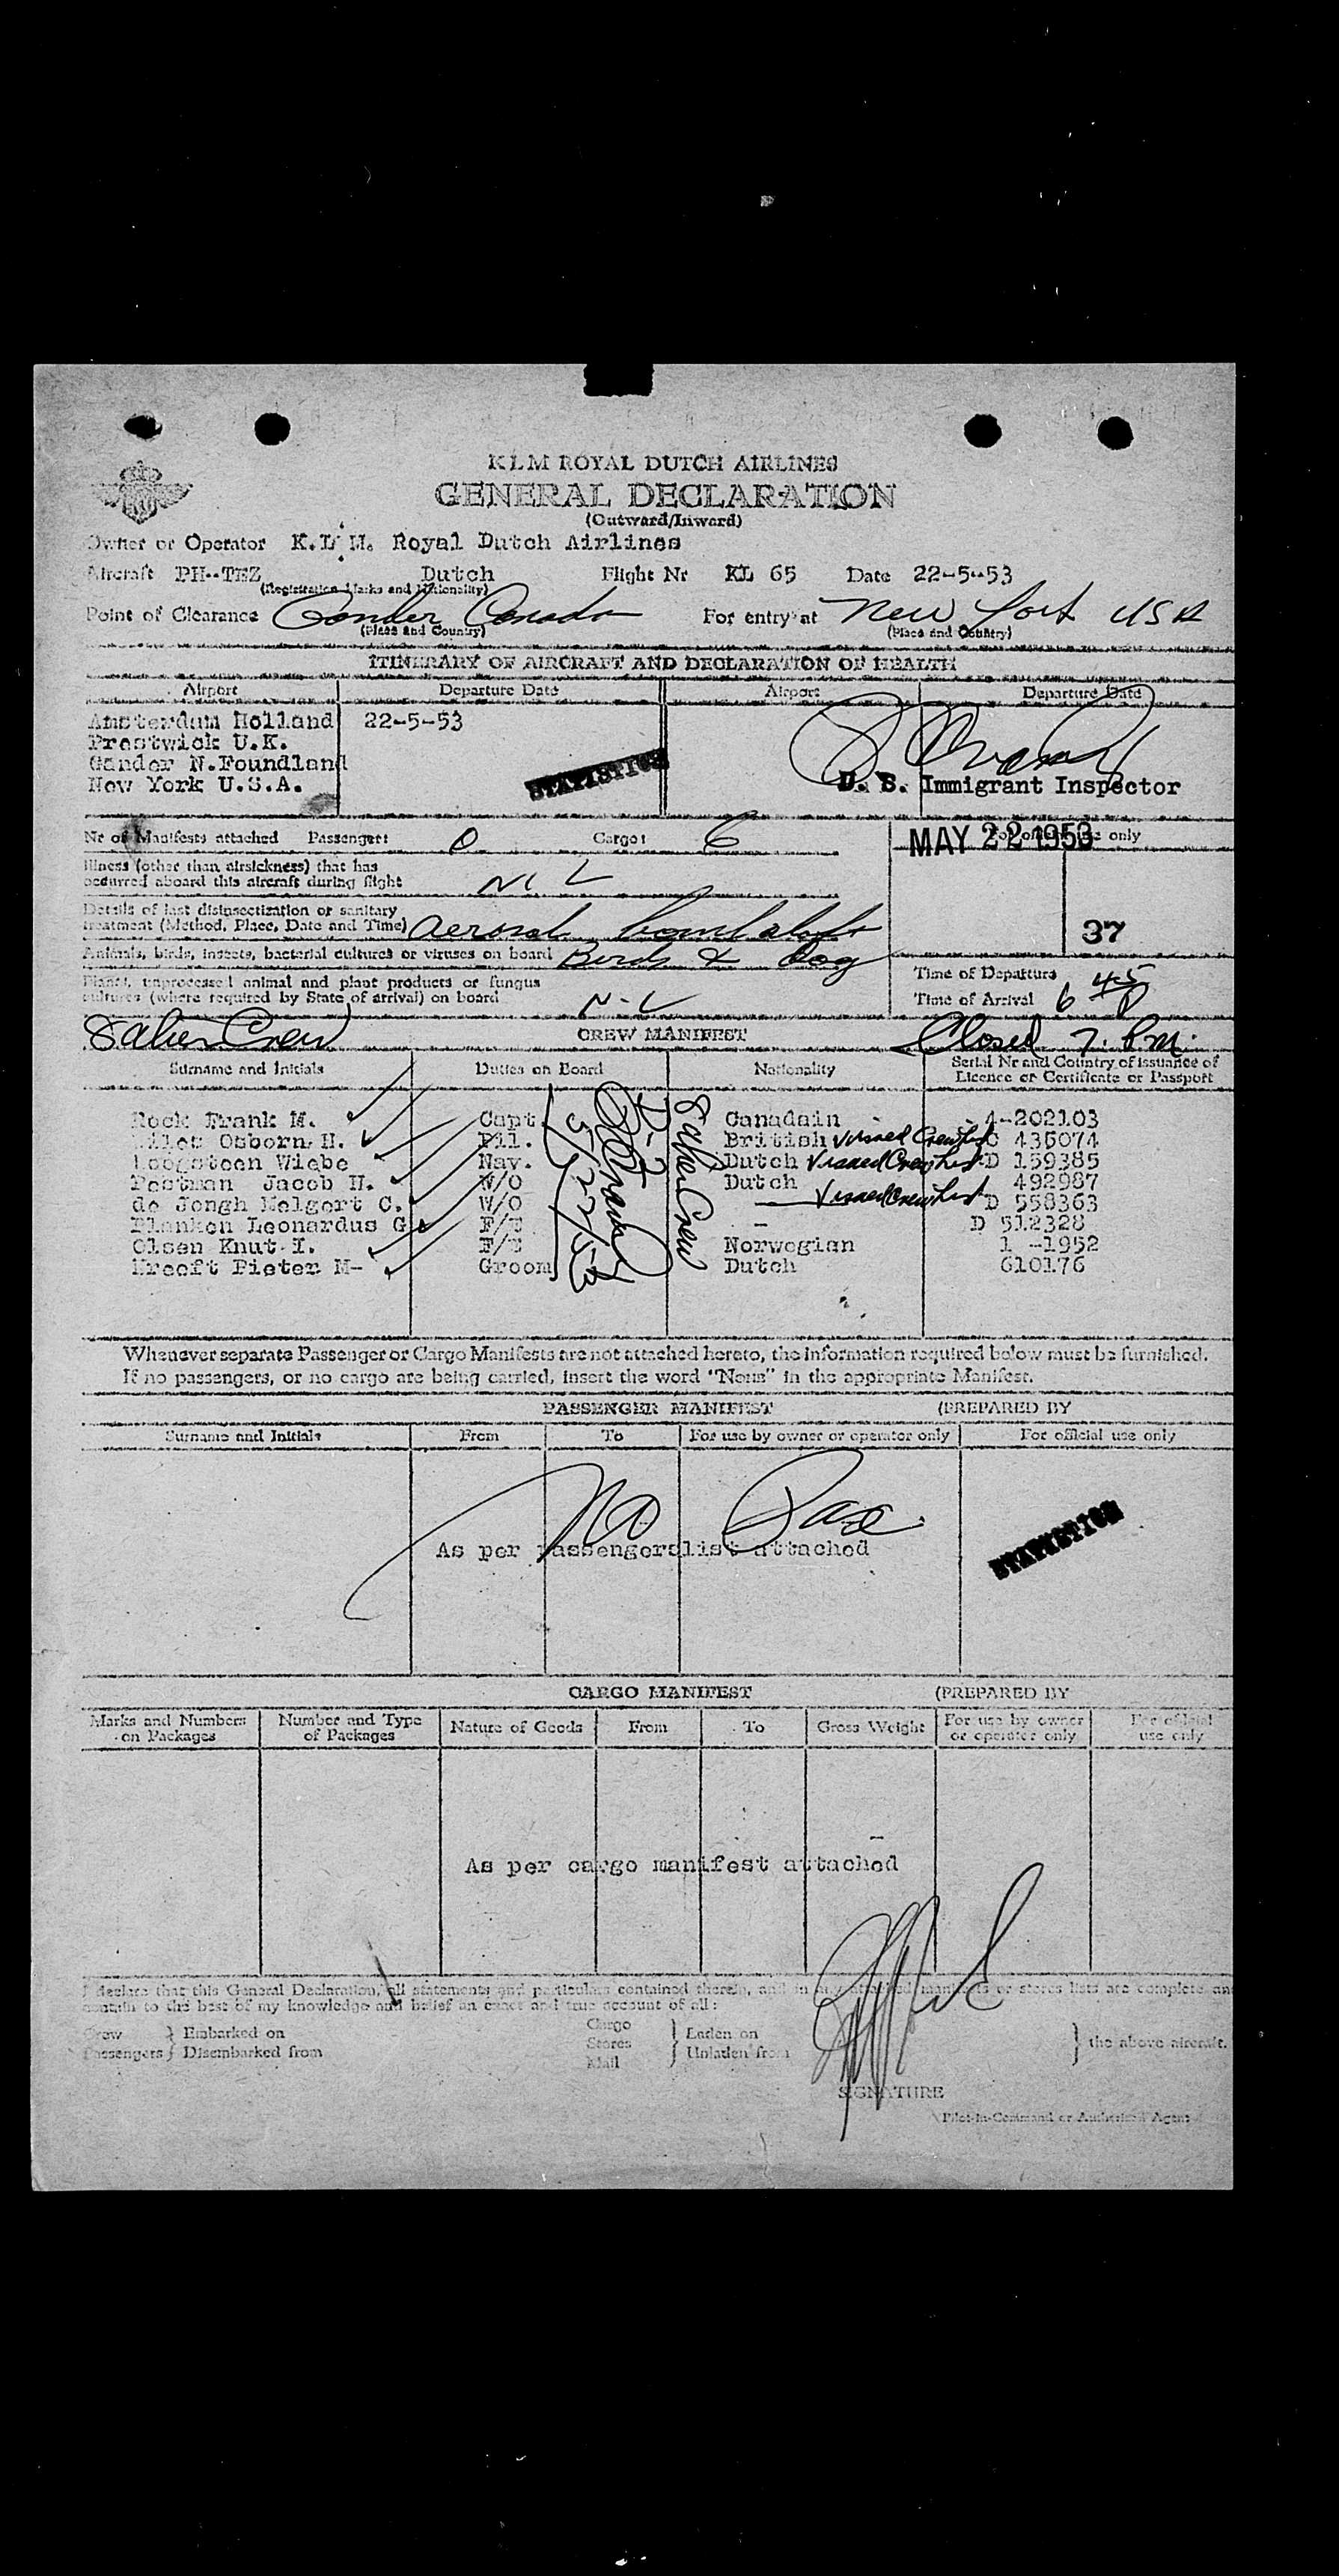 KLM ROYAL DUTCH AIRLINES
GENERAL DECLARATION
(Outward/Inward)
Owner or Operator K.L.M. Royal Dutch Airlines
Aircraft PH-TEZ Dutch Flight Nr KL 65 Date 22-5-53
(Registration Marks and Nationality)
Point of Clearance Gander Canada For entry at New York USA
(Place and Country) (Place and Country)
ITINERARY OF AIRCRAFT AND DECLARATION OF HEALTH
Airport Departure Date Airport Departure Date
Amsterdam Holland 22-5-53
Prestwick U.K.
Gander N.Foundland
New York U.S.A.
STATISTICS
U. S. Immigrant Inspector
Nr of Manifests attached Passenger: 0 Cargo: 6
For official use only
MAY 22 1953
Illness (other than airsickness) that has
occurred aboard this aircraft during flight NIL
Details of last disinsectization or sanitary
treatment (Method, Place, Date and Time) aerosol bomb aloft
37
Animals, birds, insects, bacterial cultures or viruses on board Birds & Dog
Plants, unprocessed animal and plant products or fungus
cultures (where required by State of arrival) on board NIL
Time of Departure
Time of Arrival 6 45 P
CREW MANIFEST
Closed 7. P.M.
Surname and Initials Duties on Board Nationality Serial Nr and Country of issuance of
Licence or Certificate or Passport
Rock Frank M. Capt Canadain 4-202103
Osborn H. Pil. British Visaed Crew List C 436074
Hoogsteen Wiebe Nav. Dutch Visaed Crew List D 159385
Postman Jacob H. W/O Dutch 492987
de Jongh Melgert C. W/O - Visaed Crew List D 558363
Planken Leonardus G. F/E - D 512328
Olsen Knut I. F/E Norwegian 1 -1952
Kreeft Pieter M- Groom Dutch 610176
D-2
5/22/53
Whenever separate Passenger or Cargo Manifests are not attached hereto, the information required below must be furnished.
If no passengers, or no cargo are being carried, insert the word "None" in the appropriate Manifest.
PASSENGER MANIFEST (PREPARED BY
Surname and Initials From To For use by owner or operator only For official use only
No Pax.
As per passengerslist attached
STATISTICS
CARGO MANIFEST (PREPARED BY
Marks and Numbers on Packages Number and Type of Packages Nature of Goods From To Gross Weight For use by owner or operator only For official use only
As per cargo manifest attached
I declare that this General Declaration, all statements and particulars contained therein, and in any attached manifests or stores lists are complete and
contain to the best of my knowledge and belief an exact and true account of all:
Crew } Embarked on Cargo } Laden on } the above aircraft.
Passengers } Disembarked from Stores Mail } Unladen from
SIGNATURE
Pilot-in-Command or Authorised Agent